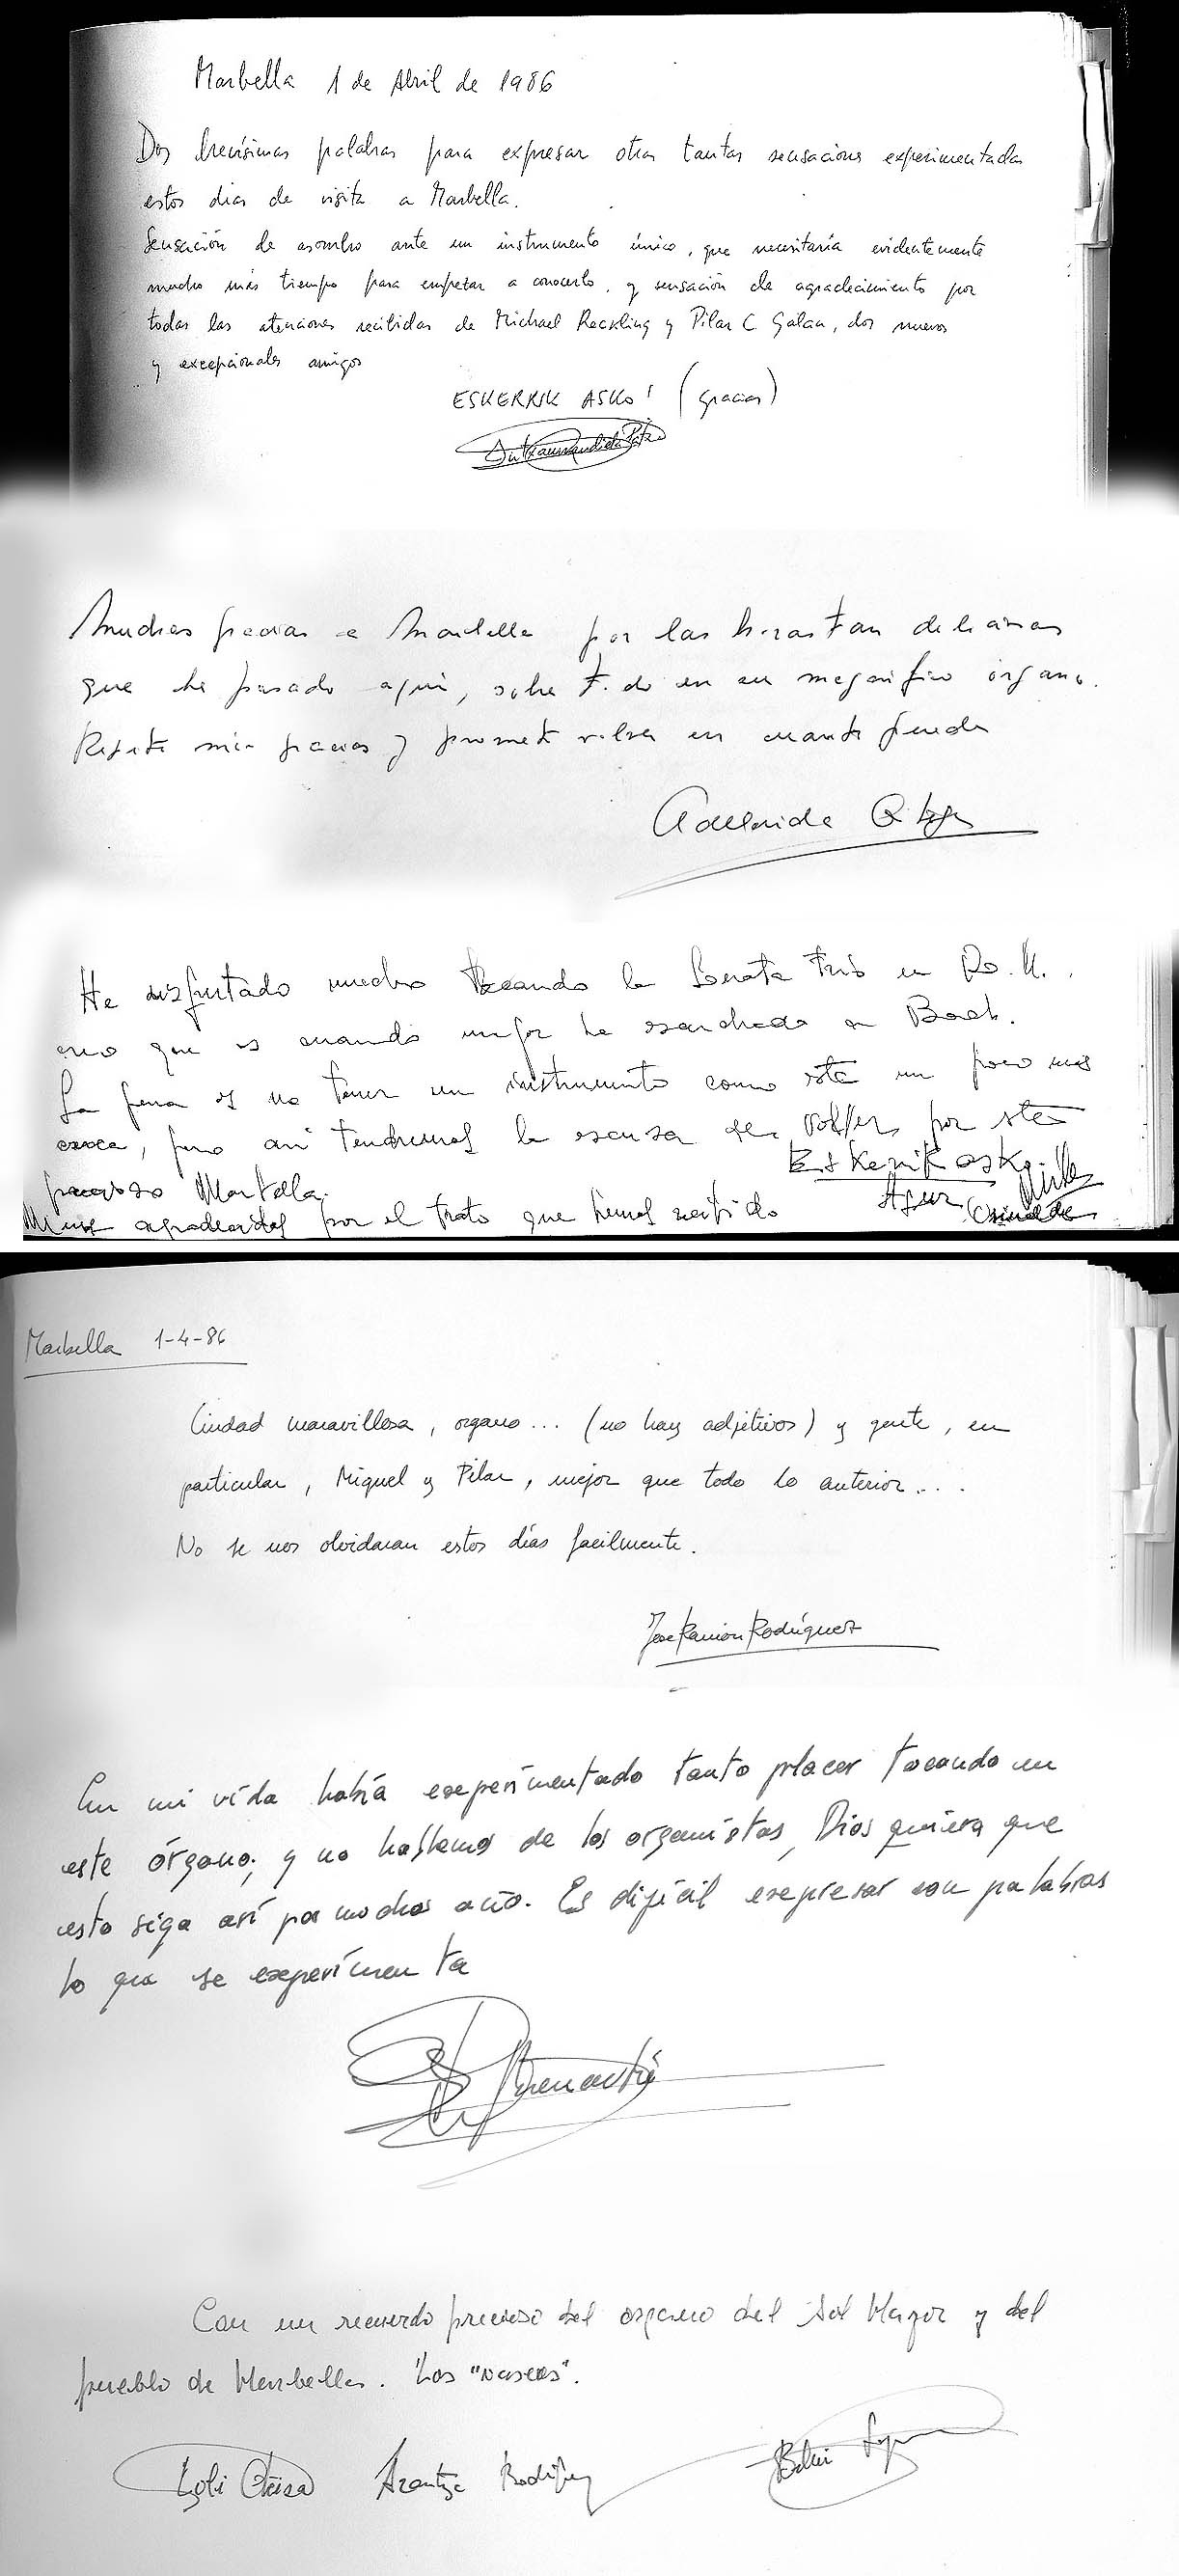 Marbella 1 de Abril de 1986
Dos brevísimas palabras para expresar otras tantas sensaciones experimentadas
estos dias de visita a Marbella.
Sensación de asombro ante un instrumento único, que necesitaría evidentemente
mucho más tiempo para empezar a conocerlo, y sensación de agradecimiento por
todas las atenciones recibidas de Michael Reckling y Pilar C Galan, dos nuevos
y excepcionales amigos
ESKERRIK ASKO! (gracias)
Muchas gracias a Marbella por las horas tan deliciosas
que he pasado aquí, sobre t.do en su magnifico órgano.
Repito mis gracias y prometo volver en cuanto pueda
Adelaida
He disfrutado mucho tocando la Sonata Trio en Do M.
creo que es cuando mejor he escuchado a Bach.
La pena es no tener un instrumento como este un poco mas
cerca, pero así tendremos la escusa de volver por este
precioso Marbella.
Muy agradecidos por el trato que hemos recibido
Eskerrik asko.
Agur
Marbella 1-4-86
Ciudad maravillosa, organo... (no hay adjetivos) y gente, en
particular, Miguel y Pilar, mejor que todo lo anterior....
No se nos olvidaran estos días facilmente.
Jose Ramon Rodríguez
En mi vida había experimentado tanto placer tocando en
este órgano; y no hablemos de los organistas, Dios quiera que
esto siga así por muchos año. Es difícil expresar con palabras
lo que se experimenta
Con un recuerdo precioso del organo del Sol Mayor y del
pueblo de Marbella. Los "vascos".
Loli Oteiza Arantza Rodríguez